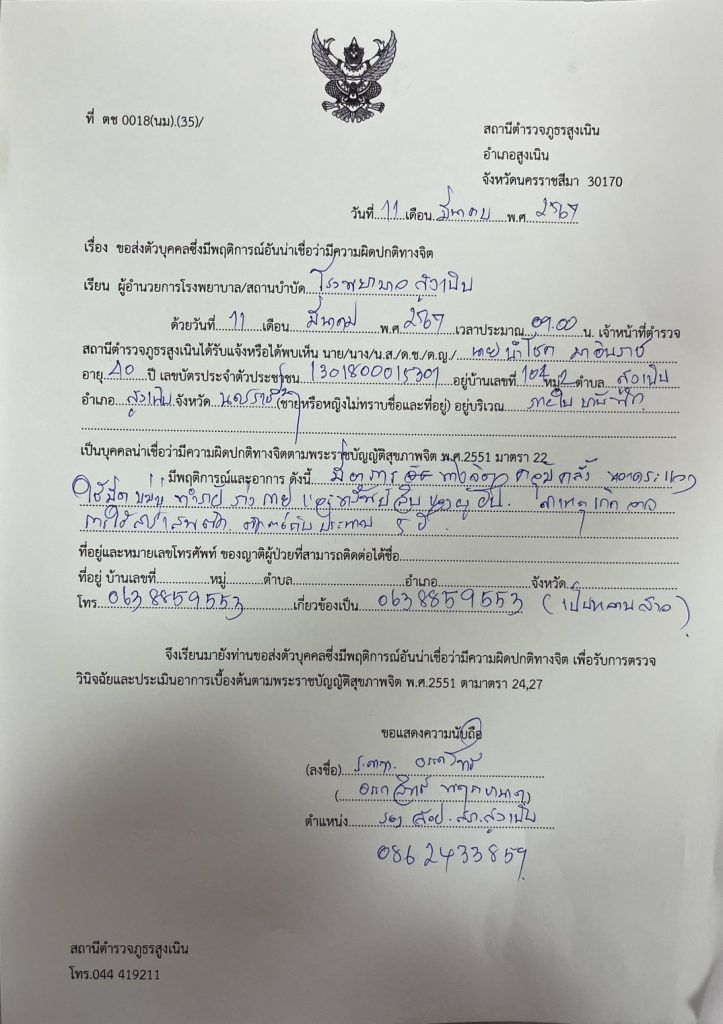 ที่ ตช 0018(นม).(35)/
สถานีตำรวจภูธรสูงเนิน
อำเภอสูงเนิน
จังหวัดนครราชสีมา 30170
วันที่ 11 เดือน มีนาคม พ.ศ. 2567
เรื่อง ขอส่งตัวบุคคลซึ่งมีพฤติการณ์อันน่าเชื่อว่ามีความผิดปกติทางจิต
เรียน ผู้อำนวยการโรงพยาบาล/สถานบำบัด โรงพยาบาล สูงเนิน
ด้วยวันที่ 11 เดือน มีนาคม พ.ศ. 2567 เวลาประมาณ 09.00 น. เจ้าหน้าที่ตำรวจ
สถานีตำรวจภูธรสูงเนินได้รับแจ้งหรือได้พบเห็น นาย/นาง/น.ส./ด.ช./ด.ญ./ นาย นำโชค
อายุ 40 ปี เลขบัตรประจำตัวประชาชน อยู่บ้านเลขที่ หมู่ 2 ตำบล สูงเนิน
อำเภอ สูงเนิน จังหวัด (ชายหรือหญิงไม่ทราบชื่อและที่อยู่) อยู่บริเวณ ภายใน
เป็นบุคคลน่าเชื่อว่ามีความผิดปกติทางจิตตามพระราชบัญญัติสุขภาพจิต พ.ศ.2551 มาตรา 22
มีพฤติการณ์และอาการ ดังนี้ มีอาการ ทางจิต คลุ้มคลั่ง หวาดระแวง
ใช้มีด ทำร้าย ร่างกาย และทรัพย์สิน ของผู้อื่น. สาเหตุเกิดจาก
การใช้สารเสพติด ประมาณ 5 ปี
ที่อยู่และหมายเลขโทรศัพท์ ของญาติผู้ป่วยที่สามารถติดต่อได้ชื่อ
ที่อยู่ บ้านเลขที่ หมู่ ตำบล อำเภอ จังหวัด
โทร 0638859553 เกี่ยวข้องเป็น 0638859553 (เป็นหลานสาว)
จึงเรียนมายังท่านขอส่งตัวบุคคลซึ่งมีพฤติการณ์อันน่าเชื่อว่ามีความผิดปกติทางจิต เพื่อรับการตรวจ
วินิจฉัยและประเมินอาการเบื้องต้นตามพระราชบัญญัติสุขภาพจิต พ.ศ.2551 ตามาตรา 24,27
ขอแสดงความนับถือ
(ลงชื่อ) ร.ต.ท.
ตำแหน่ง รอง สวป. สภ.สูงเนิน
0862433859
สถานีตำรวจภูธรสูงเนิน
โทร.044 419211